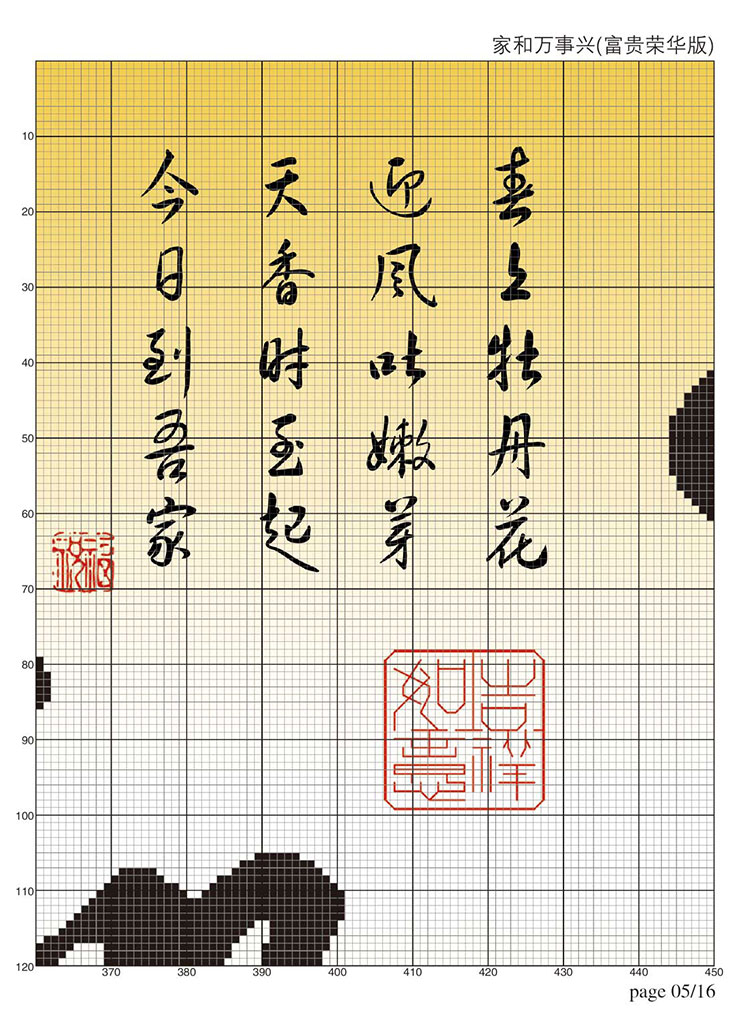 家和万事兴(富贵荣华版)
春上牡丹花
迎风吐嫩芽
天香时至起
今日到吾家
吉祥如意
10
20
30
40
50
60
70
80
90
100
110
120
370 380 390 400 410 420 430 440 450
page 05/16